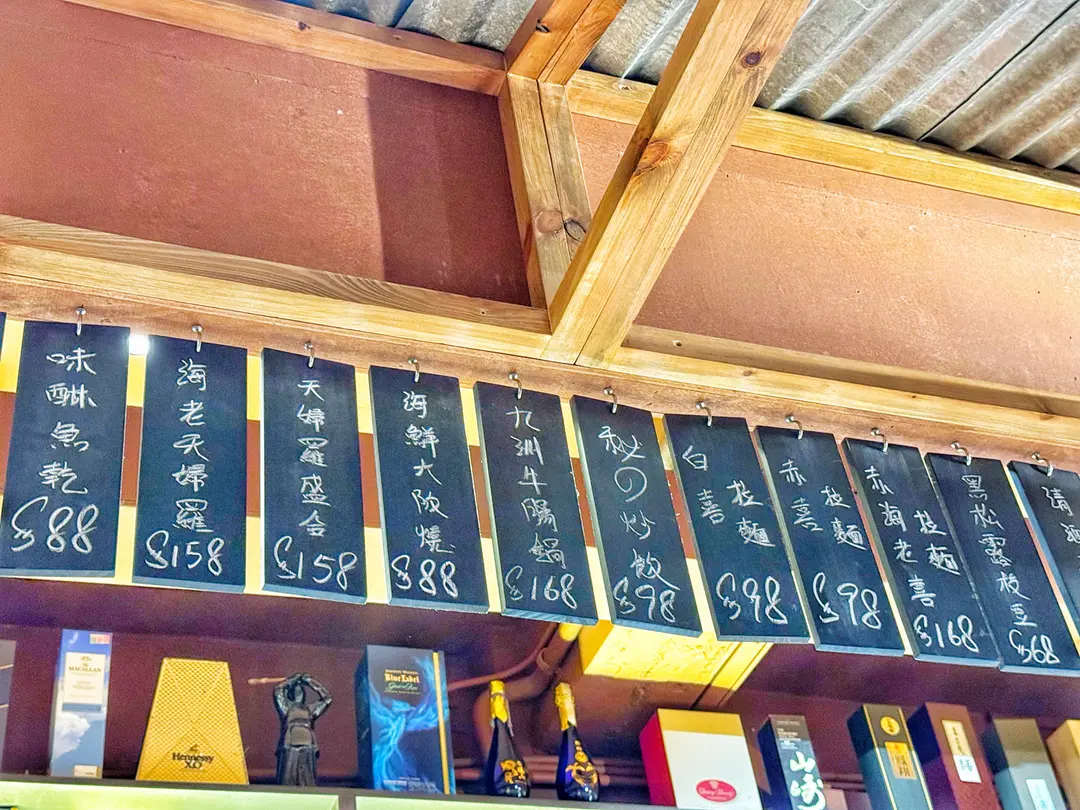 味醂魚乾
$88
海老天婦羅
$158
天婦羅盛合
$158
海鮮大阪燒
$88
九洲牛腸鍋
$168
秘の炒飯
$98
白喜
拉麵
$98
赤喜
拉麵
$98
赤海老喜
拉麵
$168
黑松露枝豆
$68
清酒
MACALLAN
Hennessy
X.O
Blue Label
山崎
響